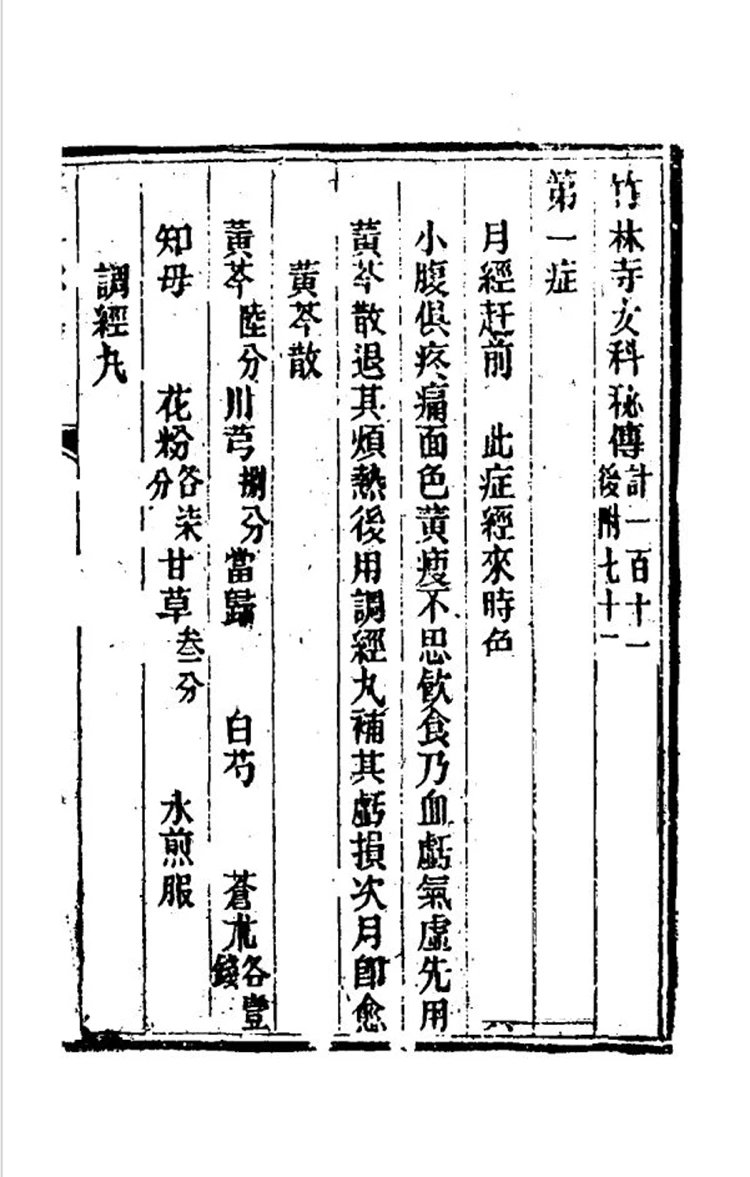 竹林寺女科秘傳計一百十一後附七十一
第一症
月經赶前　此症經來時色
小腹俱疼痛面色黃瘦不思飲食乃血虧氣虛先用
黃芩散退其煩熱後用調經丸補其虧損次月即愈
黃芩散
黃芩陸分川芎捌分當歸　白芍　蒼朮各壹錢
知母　花粉各柒分甘草叁分　水煎服
調經丸